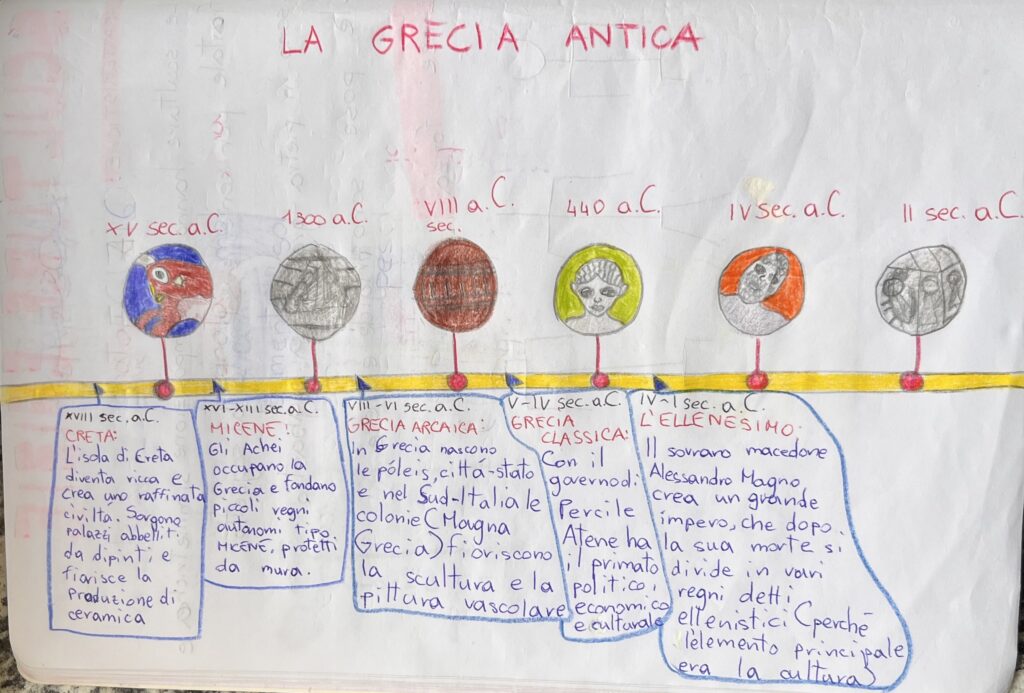 LA GRECIA ANTICA
XV sec. a.C.
1300 a.C.
VIII a.C.
sec.
440 a.C.
IV sec. a.C.
II sec. a.C.
XVIII sec. a.C.
CRETA:
L'isola di Creta
diventa ricca e
crea uno raffinata
civiltá. Sorgono
palazzi abbelliti
da dipinti e
fiorisce la
produzione di
ceramica
XVI-XIII sec. a.C.
MICENE:
Gli Achei
occupano la
Grecia e fondano
piccoli regni
autonomi tipo
MICENE, protetti
da mura.
VIII-VI sec. a.C.
GRECIA ARCAICA:
In Grecia nascono
le póleis, cittá-stato
e nel Sud-Italia le
colonie (Magna
Grecia) fioriscono
la scultura e la
pittura vascolare
V-IV sec. a.C.
GRECIA
CLASSICA:
Con il
governo di
Percile
Atene ha
il primato
politico,
economico
e culturale
IV-I sec. a.C.
L'ELLENESIMO.
Il sovrano macedone
Alessandro Magno,
crea un grande
impero, che dopo
la sua morte si
divide in vari
regni detti
ellenistici (perché
l'elemento principale
era la cultura)